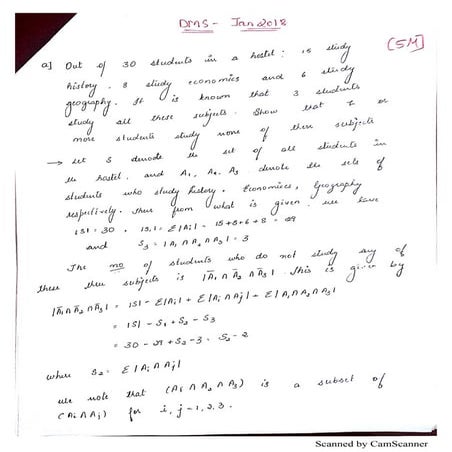 DMS - Jan 2018
[5M]
a] Out of 30 students in a hostel : 15 study
history . 8 study economics and 6 study
geography . It is known that 3 students
study all these subjects . Show that 7 or
more students study none of these subjects
→ Let S denote the set of all students in
the hostel . and A₁, A₂, A₃ denote the sets of
students who study history . Economics, Geography
respectively . Then from what is given . we have
|S| = 30 . |S₁| = Σ|Ai| = 15+8+6 = 29
and S₃ = |A₁ ∩ A₂ ∩ A₃| = 3
The no of students who do not study any of
these three subjects is |A̅₁ ∩ A̅₂ ∩ A̅₃| . This is given by
|A̅₁ ∩ A̅₂ ∩ A̅₃| = |S| - Σ|Ai| + Σ|Ai ∩ Aj| + Σ|A₁ ∩ A₂ ∩ A₃|
= |S| - S₁ + S₂ - S₃
= 30 - 29 + S₂ - 3 = S₂ - 2
where S₂ = Σ|Ai ∩ Aj|
we note that (A₁ ∩ A₂ ∩ A₃) is a subset of
(Ai ∩ Aj) for i, j = 1, 2, 3 .
Scanned by CamScanner